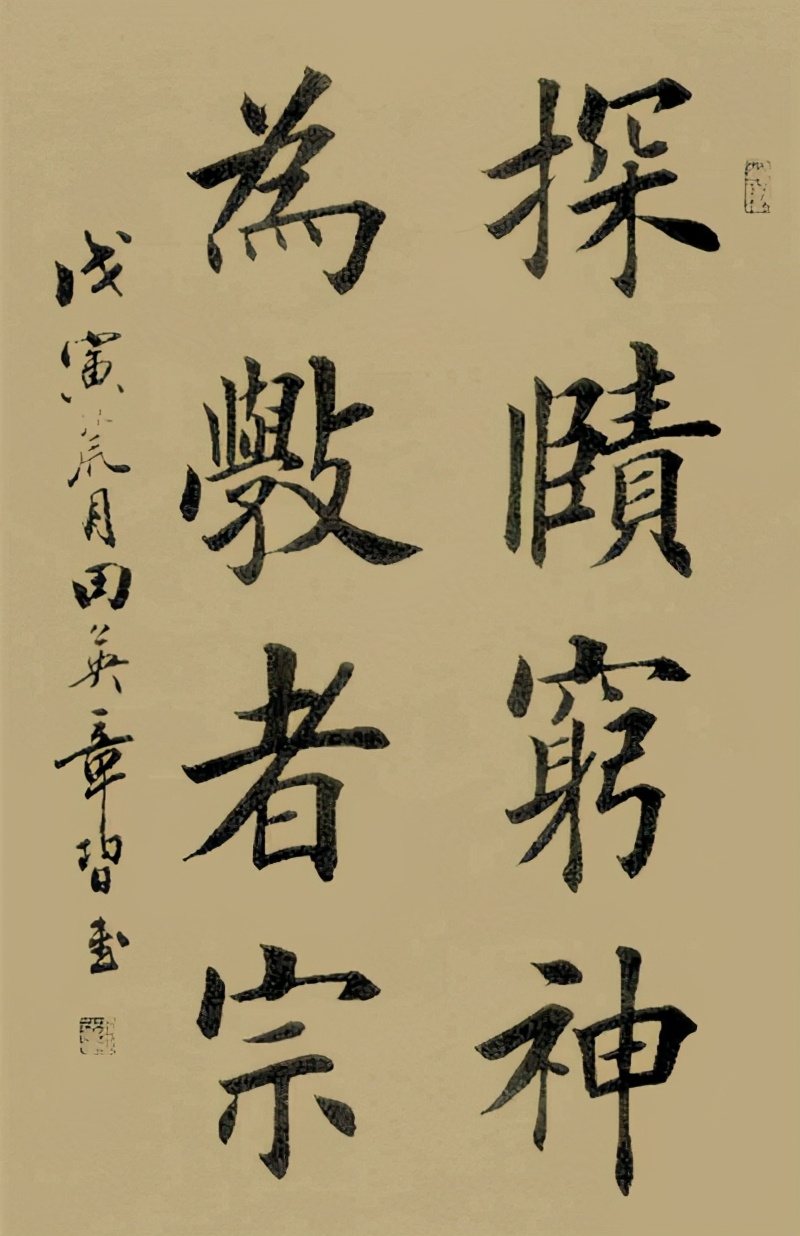 探賾窮神
為斅者宗
戊寅月田英章習書